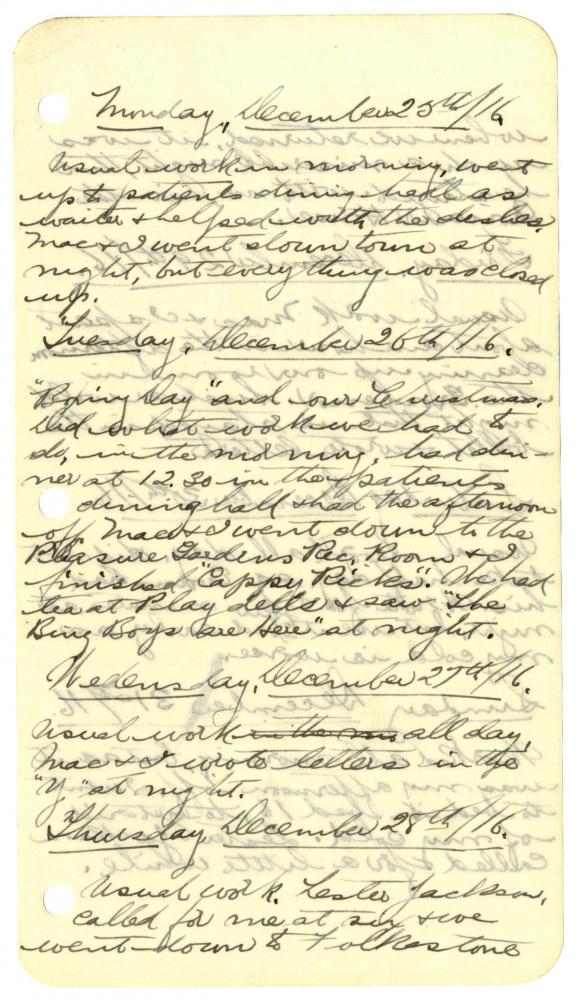 Monday, December 25th/16.
Usual work in morning, went
up to patients dining hall as
waiter & helped with the dishes.
Mac & I went down town at
night, but everything was closed
up.
Tuesday, December 26th/16.
"Boxing Day" and our Christmas.
Did what work we had to
do, in the morning, had din-
ner at 12.30 in the patients
dining hall & had the afternoon
off. Mac & I went down to the
Pleasure Gardens Rec. Room & I
finished "Cappy Ricks". We had
tea at Playdells & saw "The
Bing Boys are Here" at night.
Wednesday, December 27th/16.
Usual work in the all day,
Mac & I wrote letters in the
"Y" at night.
Thursday, December 28th/16.
Usual work. Lester Jackson,
called for me at six & we
went down to Folkestone